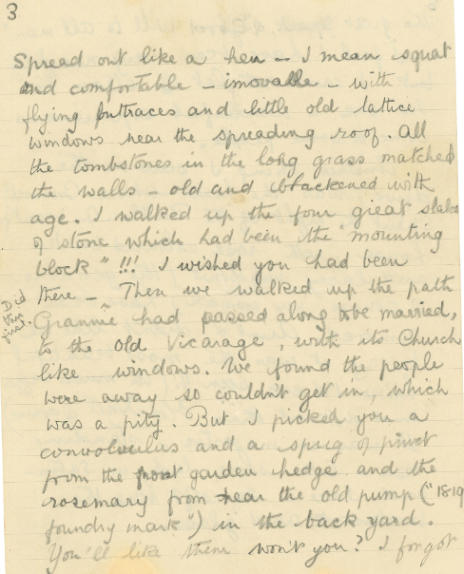 3
Spread out like a hen – I mean squat
and comfortable – imovable – with
flying butraces and little old lattice
windows near the spreading roof. All
the tombstones in the long grass matched
the walls – old and blackened with
age. I walked up the four great slabs
of stone which had been the "mounting
block" !!! I wished you had been
there – Then we walked up the path
Did
this
first.
Grannie had passed along to be married,
to the old Vicarage, with its Church
like windows. We found the people
were away so couldn't get in, which
was a pity. But I picked you a
convolvulus and a sprig of privet
from the front garden hedge and the
rosemary from near the old pump ("1819
foundry mark") in the back yard.
You'll like them won't you? I forgot